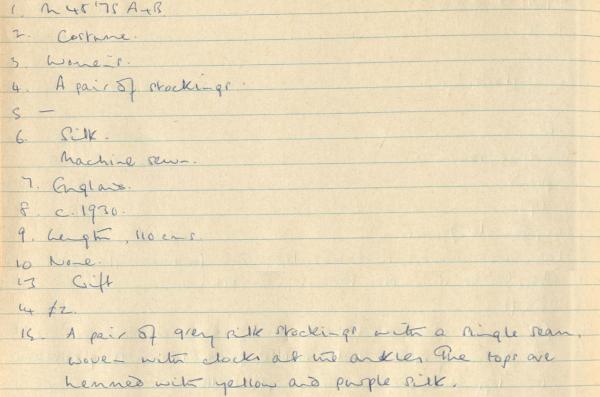 1. M 48'75 A+B.
2. Costume.
3. Women's.
4. A pair of stockings.
5 —
6. Silk.
Machine sewn.
7. England.
8. c. 1930.
9. Length, 110 cms.
10 None.
13 Gift
14 £2.
15. A pair of grey silk stockings with a single seam,
woven with clocks at the ankles. The tops are
hemmed with yellow and purple silk.